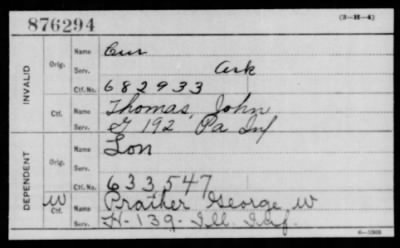 876294
(3-H-4)
INVALID
Orig.
Name
Serv.
Ark
Ctf. No.
682933
Ctf.
Name
Thomas, John
Serv.
G 192 Pa Inf
DEPENDENT
Orig.
Name
Lon
Serv.
Ctf. No.
633,547
W
Ctf.
Name
Prather George W
Serv.
H-139-Ill. Inf.